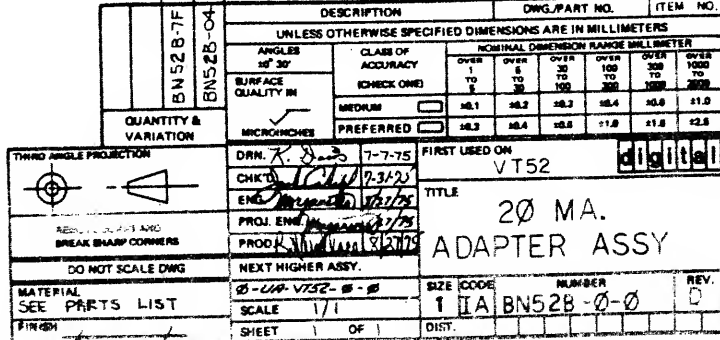 DESCRIPTION
DWG./PART NO.
ITEM NO.
BN52B-7F
BN52B-04
UNLESS OTHERWISE SPECIFIED DIMENSIONS ARE IN MILLIMETERS
ANGLES
±0° 30'
SURFACE
QUALITY IN
MICROINCHES
CLASS OF
ACCURACY
(CHECK ONE)
NOMINAL DIMENSION RANGE MILLIMETER
OVER OVER OVER OVER OVER OVER
1 6 30 100 300 1000
TO TO TO TO TO TO
30 100 300 1000
MEDIUM ±0.1 ±0.2 ±0.3 ±0.4 ±1.0
PREFERRED ±0.4
QUANTITY &
VARIATION
THIRD ANGLE PROJECTION
BREAK SHARP CORNERS
DO NOT SCALE DWG
MATERIAL
SEE PARTS LIST
FINISH
DRN. K. 7-7-75
CHK'D
ENG. 8/27/75
PROJ. ENG.
PROD. 8/27/75
NEXT HIGHER ASSY.
Ø-UA-VT52-Ø-Ø
SCALE 1/1
SHEET 1 OF 1
FIRST USED ON
VT52
digital
TITLE
2Ø MA.
ADAPTER ASSY
SIZE CODE NUMBER REV.
1 IA BN52B-Ø-Ø D
DIST.